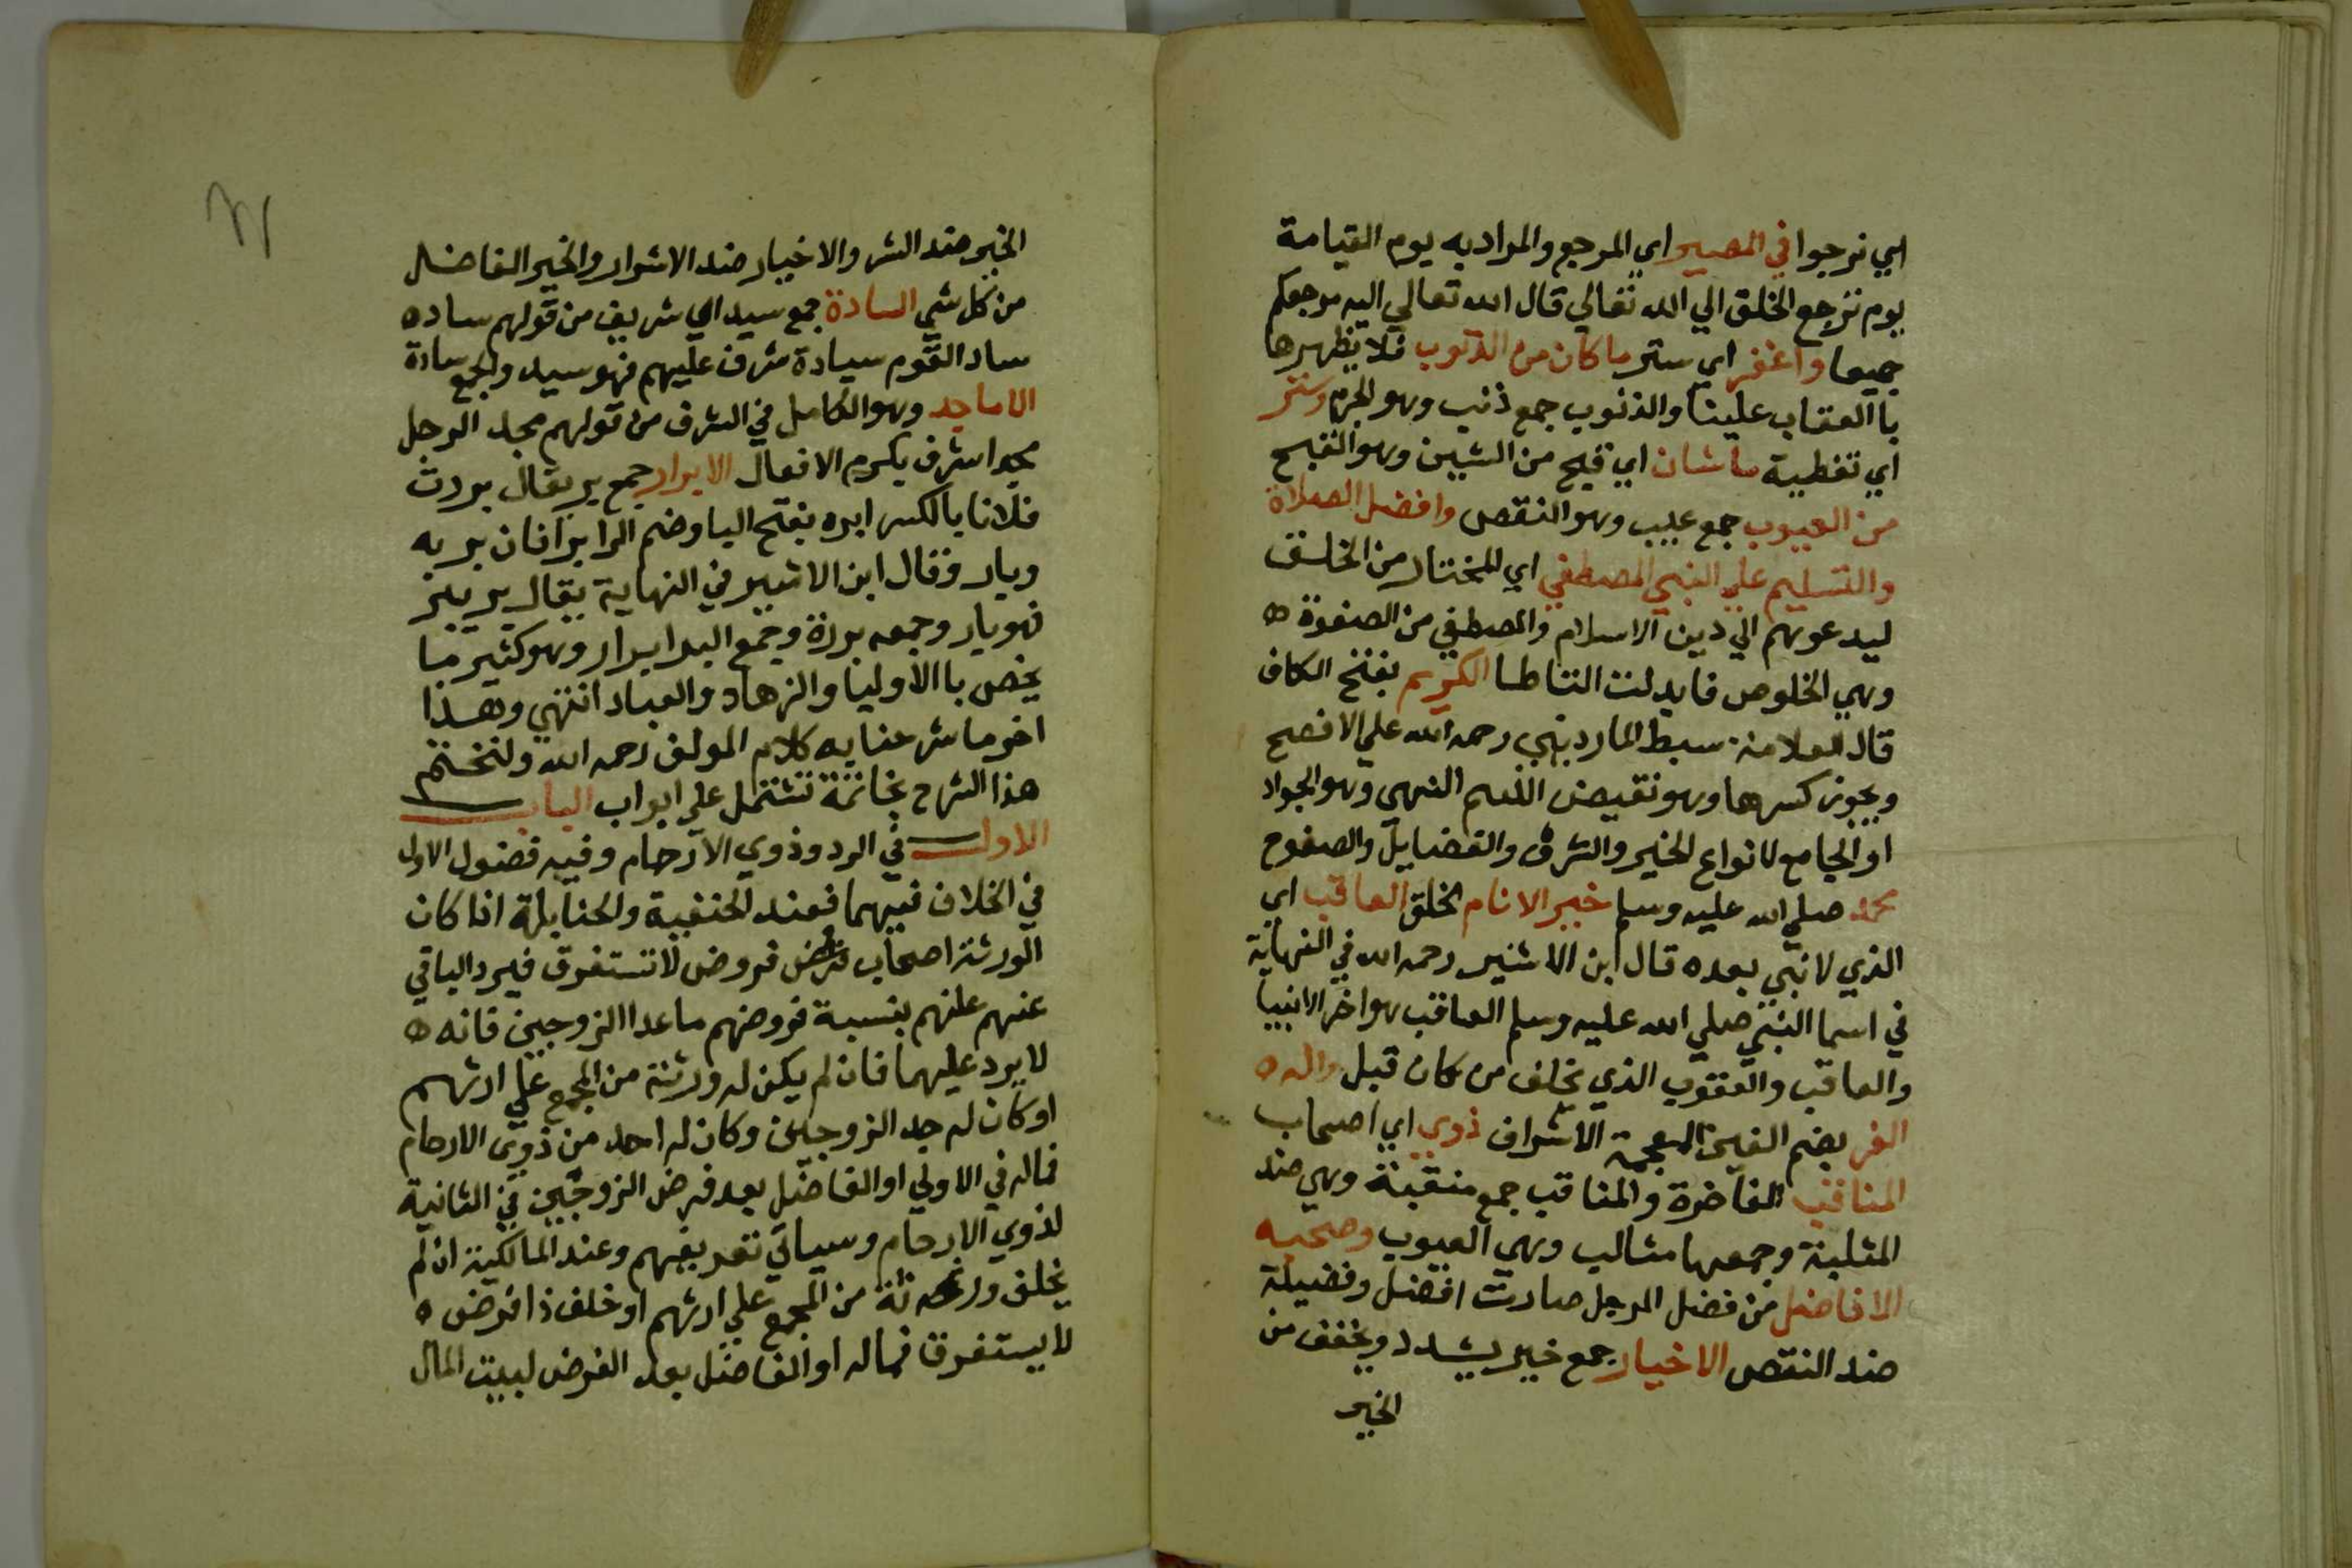 اي نرجوا في المصير اي المرجع والمراد به يوم القيامة
يوم ترجع الخلق الي الله تعالي قال الله تعالي اليه مرجعكم
جميعا واغفر اي ستر ما كان من الذنوب فلا تظهرها
با العقاب علينا والذنوب جمع ذنب وهو الجرم وستر
اي تغطية ما شان اي قبح من الشين وهو القبح
من العيوب جمع عيب وهو النقص وافضل الصلاة
والتسليم علي النبي المصطفي اي المختار من الخلق
ليدعوهم الي دين الاسلام والمصطفي من الصفوة ه
وهي الخلوص فابدلت التا طا الكريم بفتح الكاف
قال العلامة سبط المارديني رحمه الله علي الافصح
ويجوز كسرها وهو نقيض اللئيم انتهي وهو الجواد
او الجامع لانواع الخير والشرف والفضايل والصفوح
محمد صلي الله عليه وسلم خير الانام الخلق العاقب اي
الذي لا نبي بعده قال ابن الاثير رحمه الله في النهاية
في اسما النبي صلي الله عليه وسلم العاقب هو اخر الانبيا
والعاقب والعقوب الذي يخلف من كان قبله واله ه
الغر بضم الغين المعجمة الاشراف ذوي اي اصحاب
المناقب الفاخرة والمناقب جمع منقبة وهي ضد
المثلبة وجمعها مثالب وهي العيوب وصحبه
الافاضل من فضل الرجل صارت افضل وفضيلة
ضد النقص الاخيار جمع خير يشدد ويخفف من
الخير
الخير ضد الشر والاخيار ضد الاشرار والخير الفاضل
من كل شي السادة جمع سيد اي شريف من قولهم ساده
ساد القوم سيادة شرف عليهم فهو سيد والجمع سادة
الاماجد وهو الكامل في الشرف من قولهم مجد الرجل
مجدا شرف بكرم الافعال الابرار جمع بر يقال بررت
فلانا بالكسر ابره بفتح البا وضم الرا برا فان بر به
وبار وقال ابن الاثير في النهاية يقال بر يبر
فهو بار وجمعه بررة وجمع البر ابرار وهو كثير ما
يخص با الاوليا والزهاد والعباد انتهي وهذا
اخر ما شرحنا به كلام المولف رحمه الله ولنختم
هذا الشرح بخاتمة تشتمل علي ابواب الباب
الاول في الرد وذوي الارحام وفيه فصول الاول
في الخلاف فيهما فعند الحنفية والحنابلة اذا كان
الورثة اصحاب فرض فروض لا تستغرق فيرد الباقي
عنهم علنهم بنسبة فروضهم ما عدا الزوجين فانه ه
لا يرد عليهما فان لم يكن له ورثة من المجمع علي ارثهم
او كان له حد الزوجين وكان له احد من ذوي الارحام
فماله في الاولي او الفاضل بعد فرض الزوجين في الثانية
لذوي الارحام وسياتي تعريفهم وعند المالكية ان لم
يخلف ورثة من المجمع علي ارثهم او خلف ذا فرض ه
لا يستغرق فماله او الفاضل بعد الفرض لبيت المال